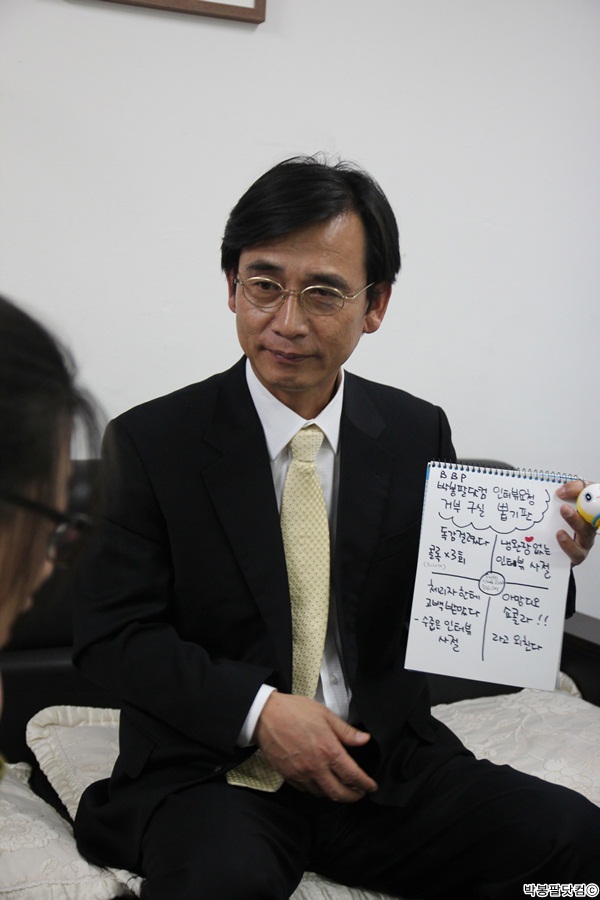 B B P
박봉팔닷컴 인터뷰요청
거부 구실 뽑기판
독감걸렸다
콜록 x3회
냉완장없는
인터뷰 사절
체리자한테
고백받았다
-수준은 인터뷰
사절
아망디오
쇼콜라!!
라고 외친다
박봉팔닷컴©